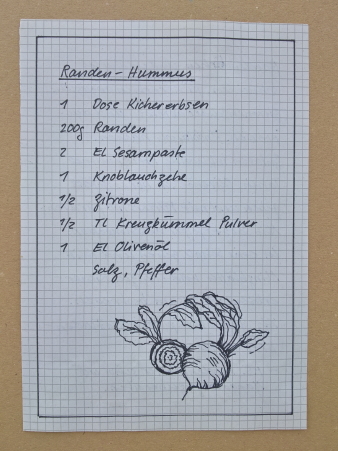 Randen-Hummus
1 Dose Kichererbsen
200g Randen
2 EL Sesampaste
1 Knoblauchzehe
1/2 Zitrone
1/2 TL Kreuzkümmel Pulver
1 EL Olivenöl
Salz, Pfeffer